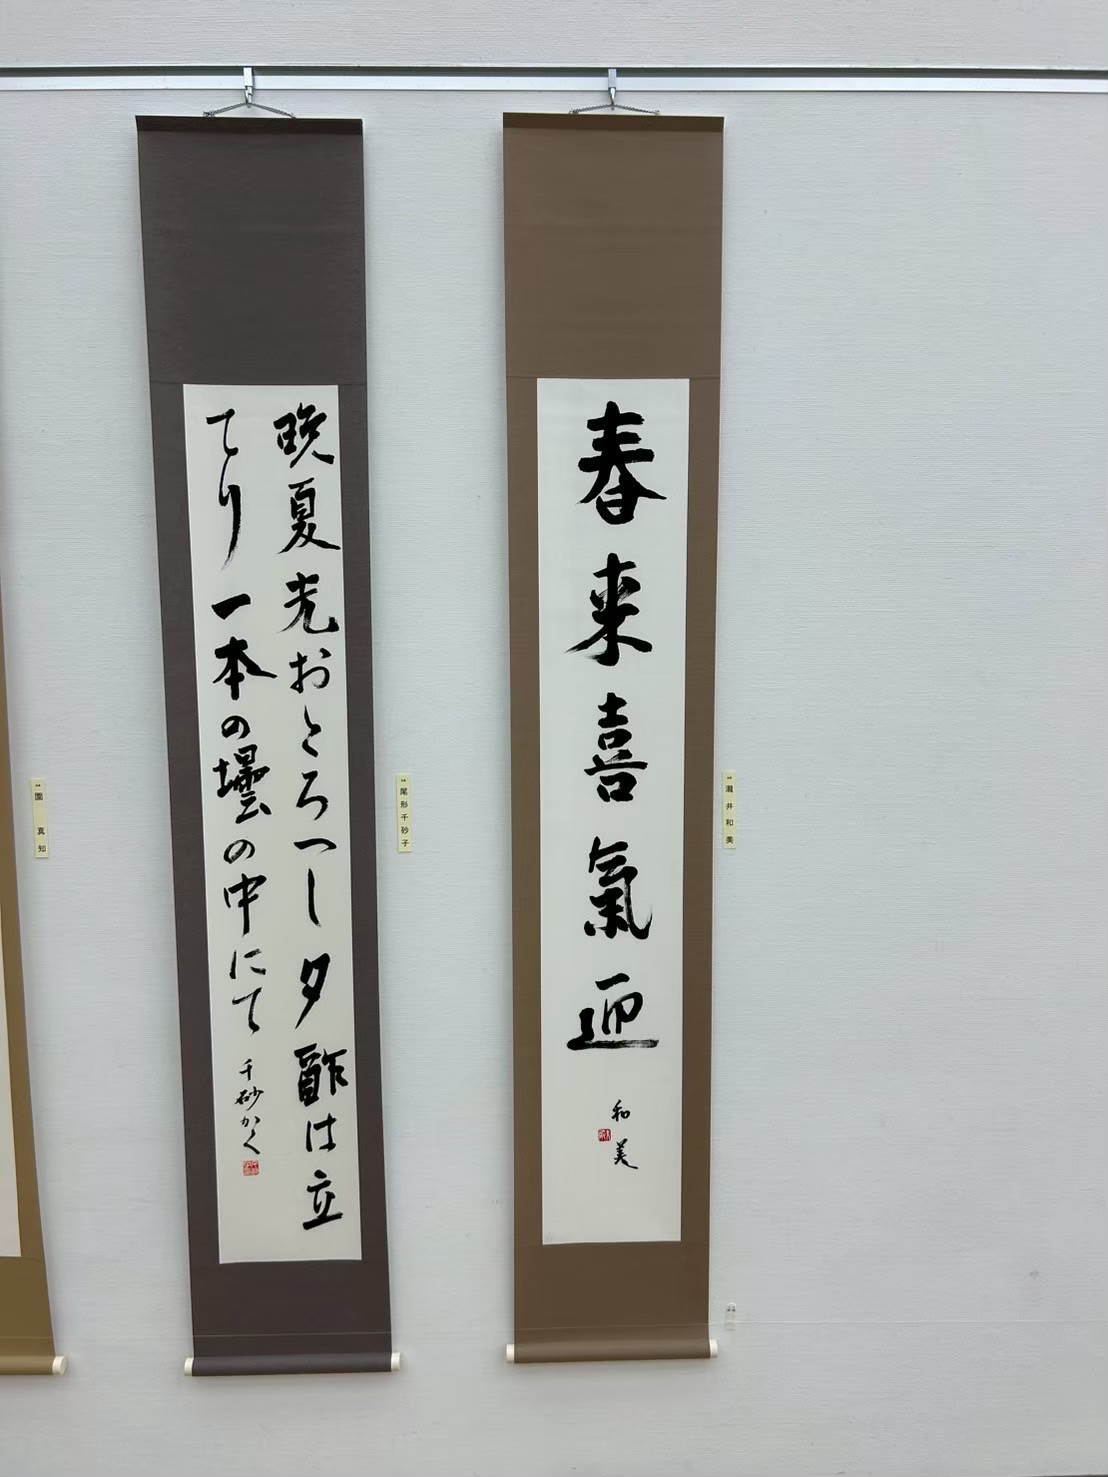 春来喜氣迎
和美
瀧井和美
晩夏光おとろへし夕酢は立
てり一本の壜の中にて
千砂かく
尾形千砂子
園 真知